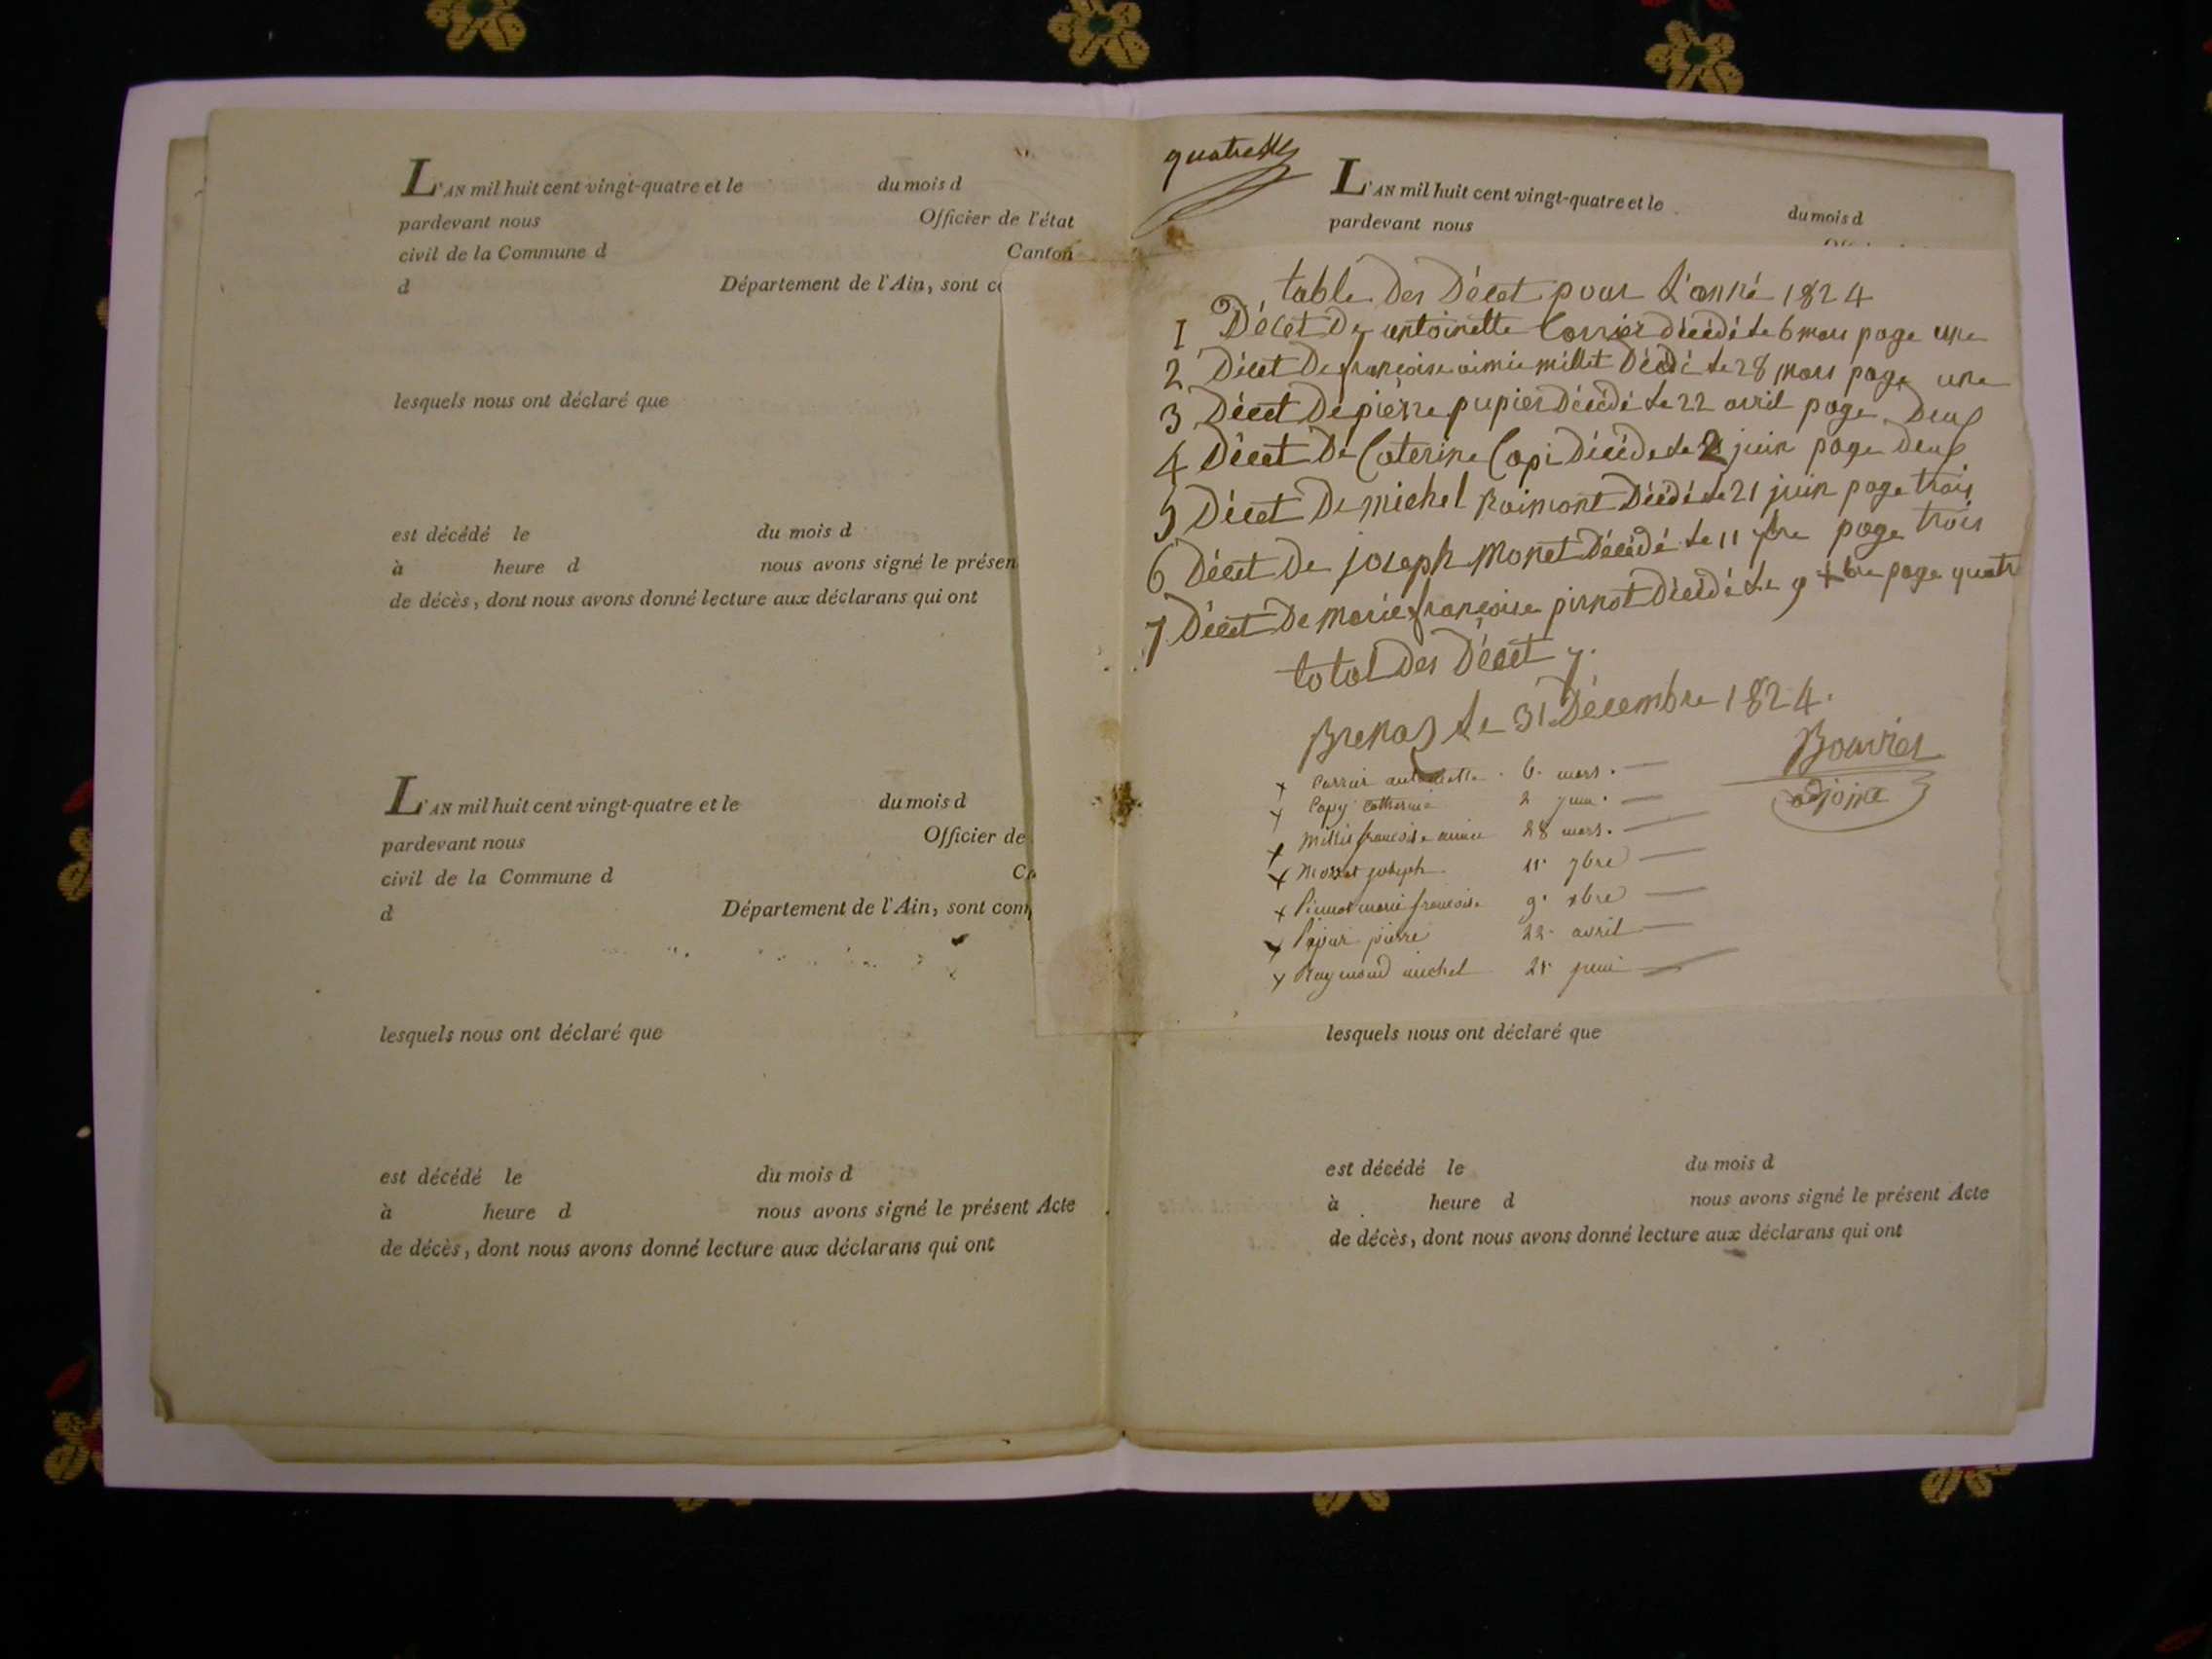 L'AN mil huit cent vingt-quatre et le du mois d
pardevant nous Officier de l'état
civil de la Commune d Canton
d Département de l'Ain, sont co
lesquels nous ont déclaré que
est décédé le du mois d
à heure d nous avons signé le présen
de décès, dont nous avons donné lecture aux déclarans qui ont
L'AN mil huit cent vingt-quatre et le du mois d
pardevant nous Officier de
civil de la Commune d Ca
d Département de l'Ain, sont com
lesquels nous ont déclaré que
est décédé le du mois d
à heure d nous avons signé le présent Acte
de décès, dont nous avons donné lecture aux déclarans qui ont
L'AN mil huit cent vingt-quatre et le du mois d
pardevant nous
table des Décet pour L'anné 1824
1 Décet De antoinette Carrier décédé le 6 mars page une
2 Décet De françoise aimée millet Décédé le 28 mars page une
3 Décet De pierre pupier Décédé le 22 avril page Deux
4 Décet De Caterine Capi Décédé le 2 juin page Deux
5 Décet De michel Raimont Décédé le 21 juin page trois
6 Décet De joseph Monet Décédé le 11 7bre page trois
7 Décet De marie françoise pirnot Décédé le 9 Xbre page quatr
total des Décet 7.
Brenas le 31 Décembre 1824.
Bouvier
adjoint
x Carrier antoinette . 6. mars. —
x Capy Catherine 2 juin. —
x Millet françoise aimée 28 mars. —
x Monet joseph 11. 7bre —
x Pirnot marie françoise 9. xbre —
x Pupier pierre 22. avril —
x Raymond michel 21. juin —
lesquels nous ont déclaré que
est décédé le du mois d
à heure d nous avons signé le présent Acte
de décès, dont nous avons donné lecture aux déclarans qui ont